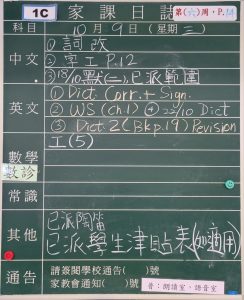 1C 家課日誌 第(六)周，P.14
科目 10月9日(星期三)
① 詞改
中文 ② 寫工 P.12
③ 18/10默(二),已派範圍
① Dict. Corr. + Sign.
英文 ② WS (Ch.1) ④ 22/10 Dict
③ Dict. 2 (Bk p.19) Revision
工(5)
數學
數診
常識
已派陶笛
其他
已派學生津貼表(如適用)
通告 請簽閱學校通告( )號
家教會通知( )號
普：朗讀室，語音室